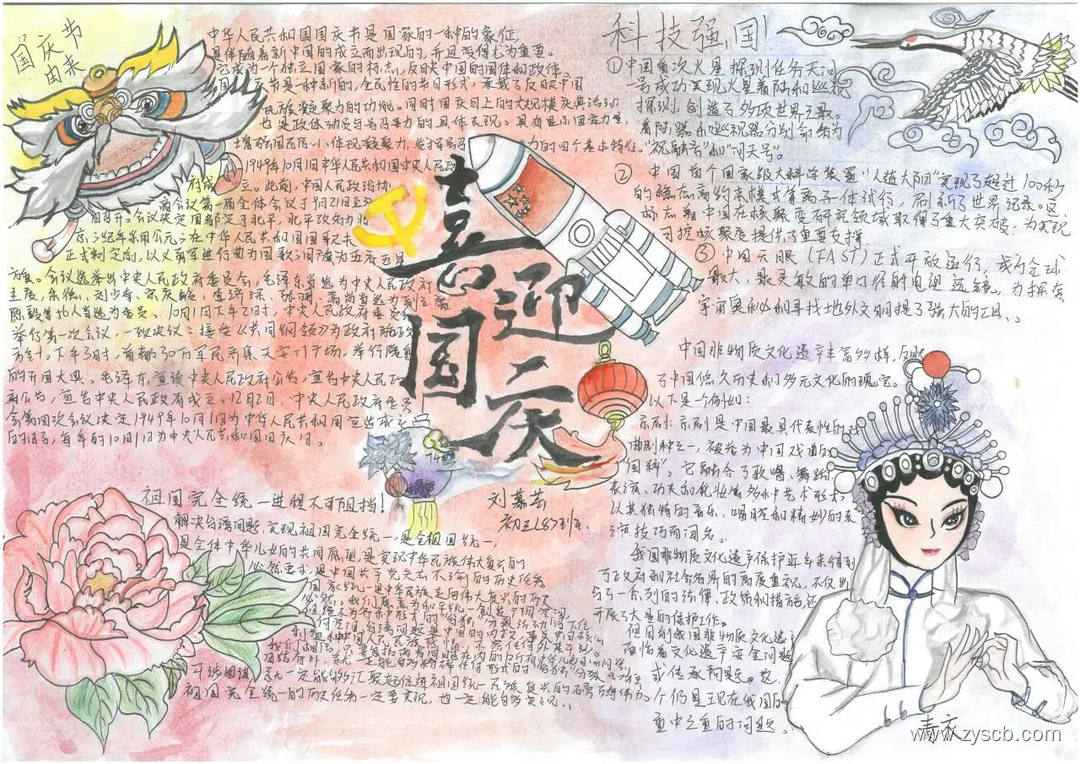 国庆节
由来
中华人民共和国国庆节是国家的一种的象征,
是伴随着新中国的成立而出现的,并且变得尤为重要。
它成为一个独立国家的标志,反映中国的国体和政体。
国庆节是一种新的,全民性的节日形式,承载了反映中国
民族凝聚力的功能。同时国庆日上的大规模庆典活动
也是政体动员与号召力的具体表现。具有显示国力量、
增强国民信心,体现凝聚力,发挥号召 力的四个基本特征。
1949年10月1日中华人民共和国中央人民政
府成 立。此前,中国人民政治协
商会议第一届全体会议于9月21日至
召开。会议决定国都定于北平,北平改名为北
京;纪年采用公元;在中华人民共和国国歌未
正式制定前,以义勇军进行曲为国歌;国旗为五星红
旗。会议选举出中央人民政府委员会,毛泽东当选为中央人民政府
主席,朱德、刘少奇、宋庆龄、李济深、张澜、高岗当选为副主席
陈毅等56人当选为委员。10月1日下午2时,中央人民政府委员会
举行第一次会议,一致决议:接受《共同纲领》为政府施政
方针。下午3时,首都30万军民齐集天安门广场,举行隆重
的开国大典。毛泽东宣读中央人民政府公告,宣告中央人民政
府公告,宣告中央人民政府成立。12月2日,中央人民政府委员
会第四次会议决定1949年10月1日为中华人民共和国宣告成立
的日子,每年的10月1日为中央人民共和国国庆日。
喜迎
国庆
74
刘慕芸
初三L87班
科技强国!
①中国首次火星探测任务天问
一号成功实现火星着陆和巡视
探测,创造了多项世界之最。
着陆器和巡视器分别命名为
"祝融号"和"天问号"
② 中国首个国家级大科学装置"人造太阳"实现了超过100秒
的稳态高约束模式等离子体运行,刷新了世界记录。这
标志着中国在核聚变研究领域取得了重大突破,为实现
可控核聚变提供了重要支撑
③ 中国天眼(FAST)正式开放运行,成为全球
最大、最灵敏的单口径射电望远镜,为探索
宇宙奥秘和寻找地外文明提了强大的工具、、
中国非物质文化遗产丰富多样,反映
了中国悠久历史和多元文化的瑰宝。
以下是一个例如:
京剧:京剧是中国最具代表性的戏
曲剧种之一,被誉为中国戏曲的
国粹",它融合了歌唱、舞蹈
表演、功夫和化妆等多种艺术形式
以其独特的音乐、唱腔和精妙的表
演技巧而闻名。
我国非物质文化遗产保护近年来得到
了政府和社会各界的高度重视,不仅出
台了一系列的法律、政策和措施还
开展了大量的保护工作。
但目前我国非物质文化遗产
面临着文化遗产安全问题
或传承问题、故,
个仍是现在我国的
重中之重的问题。
祖国完全统一进程不可阻挡!
解决台湾问题,实现祖国完全统一,是全祖国统一,
是全体中华儿女的共同愿望是实现中华民族伟大复兴的
必然要求,是中国共产党矢志不渝的历史任务
国家统一是中华民族走向伟大复兴的历史
必然。
祖国完全统一的历史任务一定要实现,也一定能够实现、、
青衣
www.zyscb.com